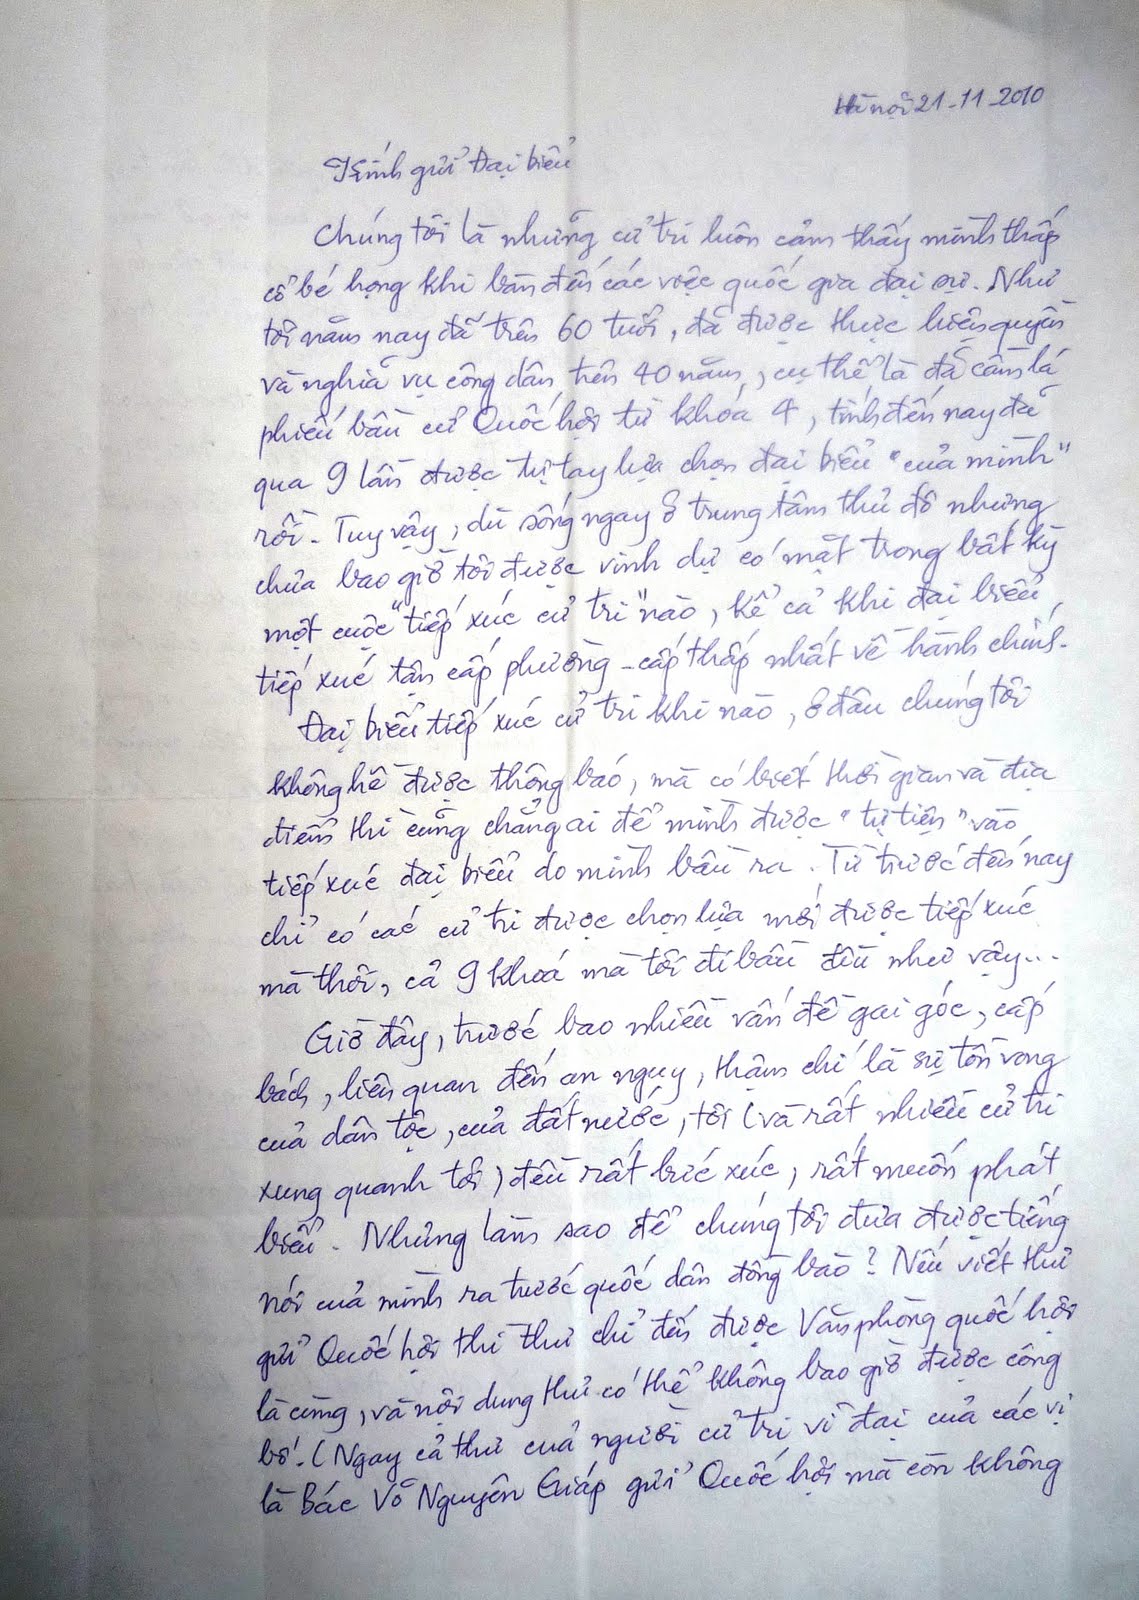 Hà nội 21-11-2010
Kính gửi Đại biểu
Chúng tôi là những cử tri luôn cảm thấy mình thấp
cổ bé họng khi bàn đến các việc quốc gia đại sự. Như
tôi năm nay đã trên 60 tuổi, đã được thực hiện quyền
và nghĩa vụ công dân trên 40 năm, cụ thể là đã cầm lá
phiếu bầu cử Quốc hội từ khoá 4, tính đến nay đã
qua 9 lần được tự tay lựa chọn đại biểu "của mình"
rồi. Tuy vậy, dù sống ngay ở trung tâm thủ đô nhưng
chưa bao giờ tôi được vinh dự có mặt trong bất kỳ
một cuộc "tiếp xúc cử tri" nào, kể cả khi đại biểu
tiếp xúc tận cấp phường - cấp thấp nhất về hành chính.
Đại biểu tiếp xúc cử tri khi nào, ở đâu chúng tôi
không hề được thông báo, mà có biết thời gian và địa
điểm thì cũng chẳng ai để mình được "tự tiện" vào
tiếp xúc đại biểu do mình bầu ra. Từ trước đến nay
chỉ có các cử tri được chọn lựa mới được tiếp xúc
mà thôi, cả 9 khoá mà tôi đi bầu đều như vậy...
Giờ đây, trước bao nhiêu vấn đề gai góc, cấp
bách, liên quan đến an nguy, thậm chí là sự tồn vong
của dân tộc, của đất nước, tôi (và rất nhiều cử tri
xung quanh tôi) đều rất bức xúc, rất muốn phát
biểu. Nhưng làm sao để chúng tôi đưa được tiếng
nói của mình ra trước quốc dân đồng bào? Nếu viết thư
gửi Quốc hội thì thư chỉ đến được Văn phòng quốc hội
là cùng, và nội dung thư có thể không bao giờ được công
bố. (Ngay cả thư của người cử tri vĩ đại của các vị
là Bác Võ Nguyên Giáp gửi Quốc hội mà còn không